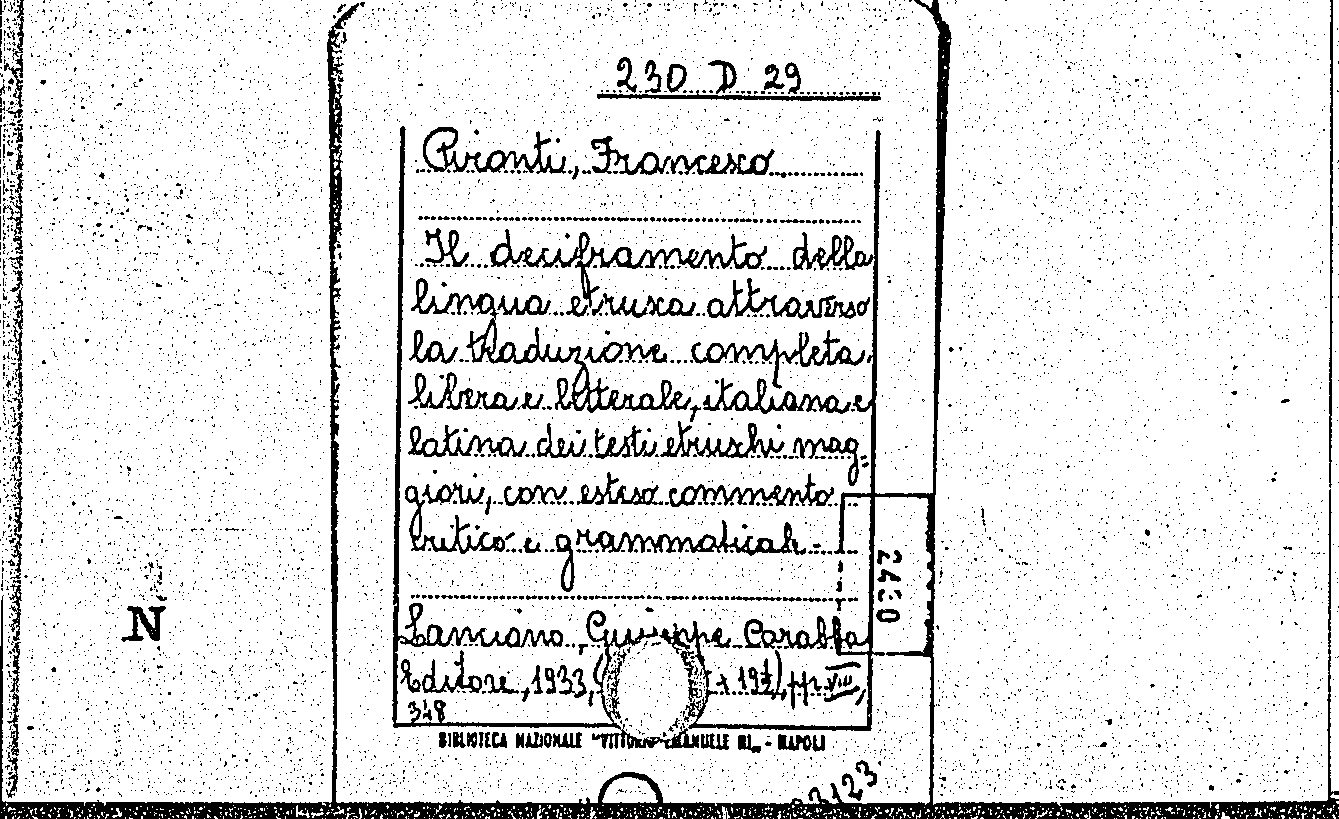 230 D 29
Pironti, Francesco.
Il deciframento della
lingua etrusca attraverso
la traduzione completa,
libera e letterale, italiana e
latina dei testi etruschi mag-
giori, con esteso commento
critico e grammaticale.
Lanciano, Giuseppe Carabba
Editore, 1933, ( + 19½), pp. VIII,
348
BIBLIOTECA NAZIONALE "VITTORIO EMANUELE III" - NAPOLI
N